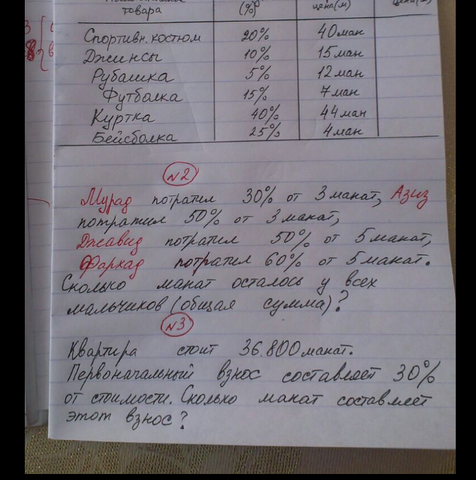 товара (%) цена(м)
Спортивн. костюм 20% 40 ман
Джинсы 10% 15 ман
Рубашка 5% 12 ман
Футболка 15% 7 ман
Куртка 40% 44 ман
Бейсболка 25% 4 ман
№2
Мурад потратил 30% от 3 манат, Азиз
потратил 50% от 3 манат,
Джавид потратил 50% от 5 манат,
Фархад потратил 60% от 5 манат.
Сколько манат осталось у всех
мальчиков (общая сумма)?
№3
Квартира стоит 36.800 манат.
Первоначальный взнос составляет 30%
от стоимости. Сколько манат составляет
этот взнос?